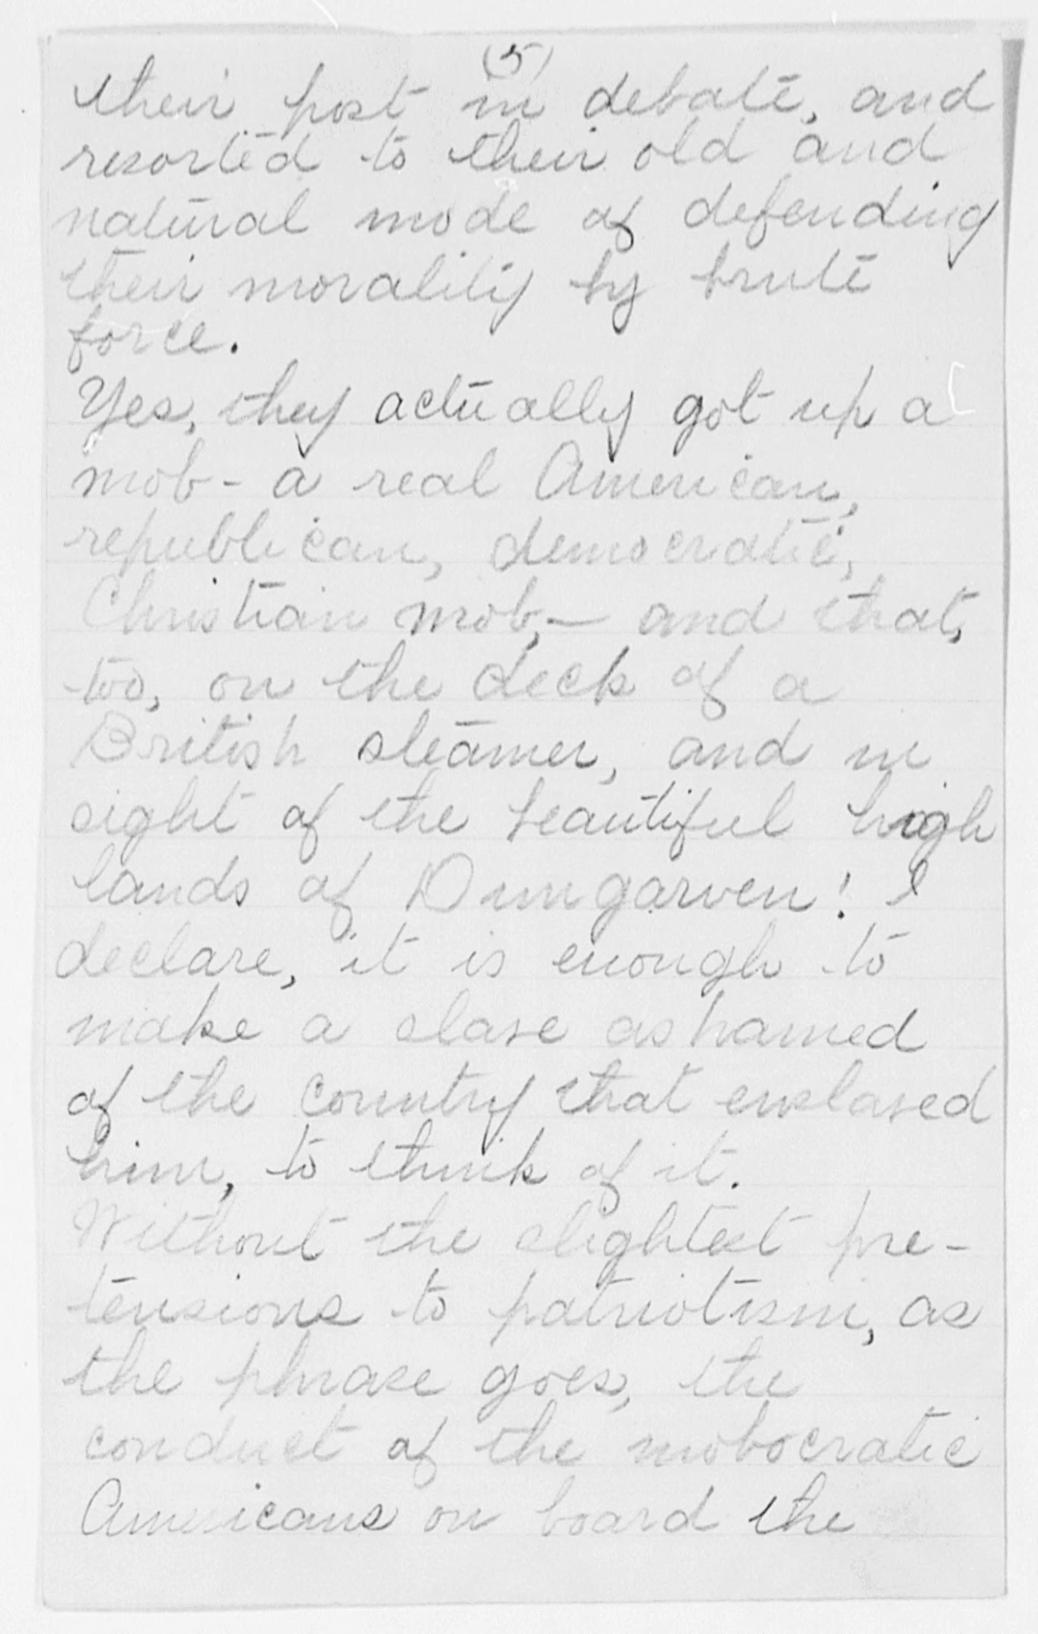 (5)
their post in debate, and
resorted to their old and
natural mode of defending
their morality by brute
force.
Yes, they actually got up a
mob - a real American,
republican, democratic,
Christian mob, — and that,
too, on the deck of a
British steamer, and in
sight of the beautiful high
lands of Dungarven! I
declare, it is enough to
make a slave ashamed
of the country that enslaved
him, to think of it.
Without the slightest pre-
tensions to patriotism, as
the phrase goes, the
conduct of the mobocratic
Americans on board the